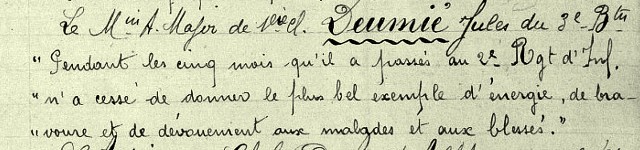 Le Min A. Major de 1ère cl. Deumié Jules du 3e Btn
"Pendant les cinq mois qu'il a passés au 2e Rgt d'Inf.
"n'a cessé de donner le plus bel exemple d'énergie, de bra-
"voure et de dévouement aux malades et aux blessés."